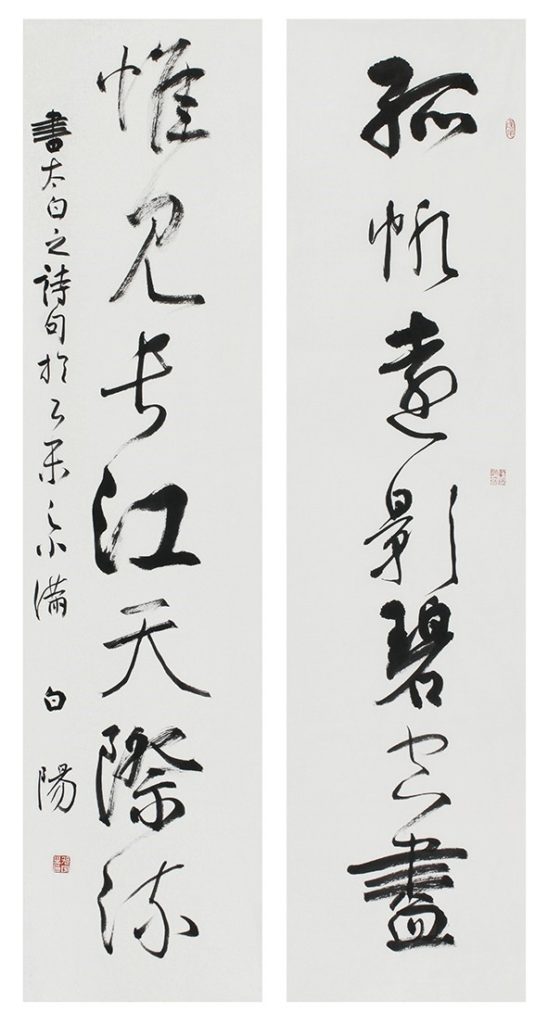 孤帆遠影碧空盡
惟見長江天際流
書太白之詩句於之小滿 白陽